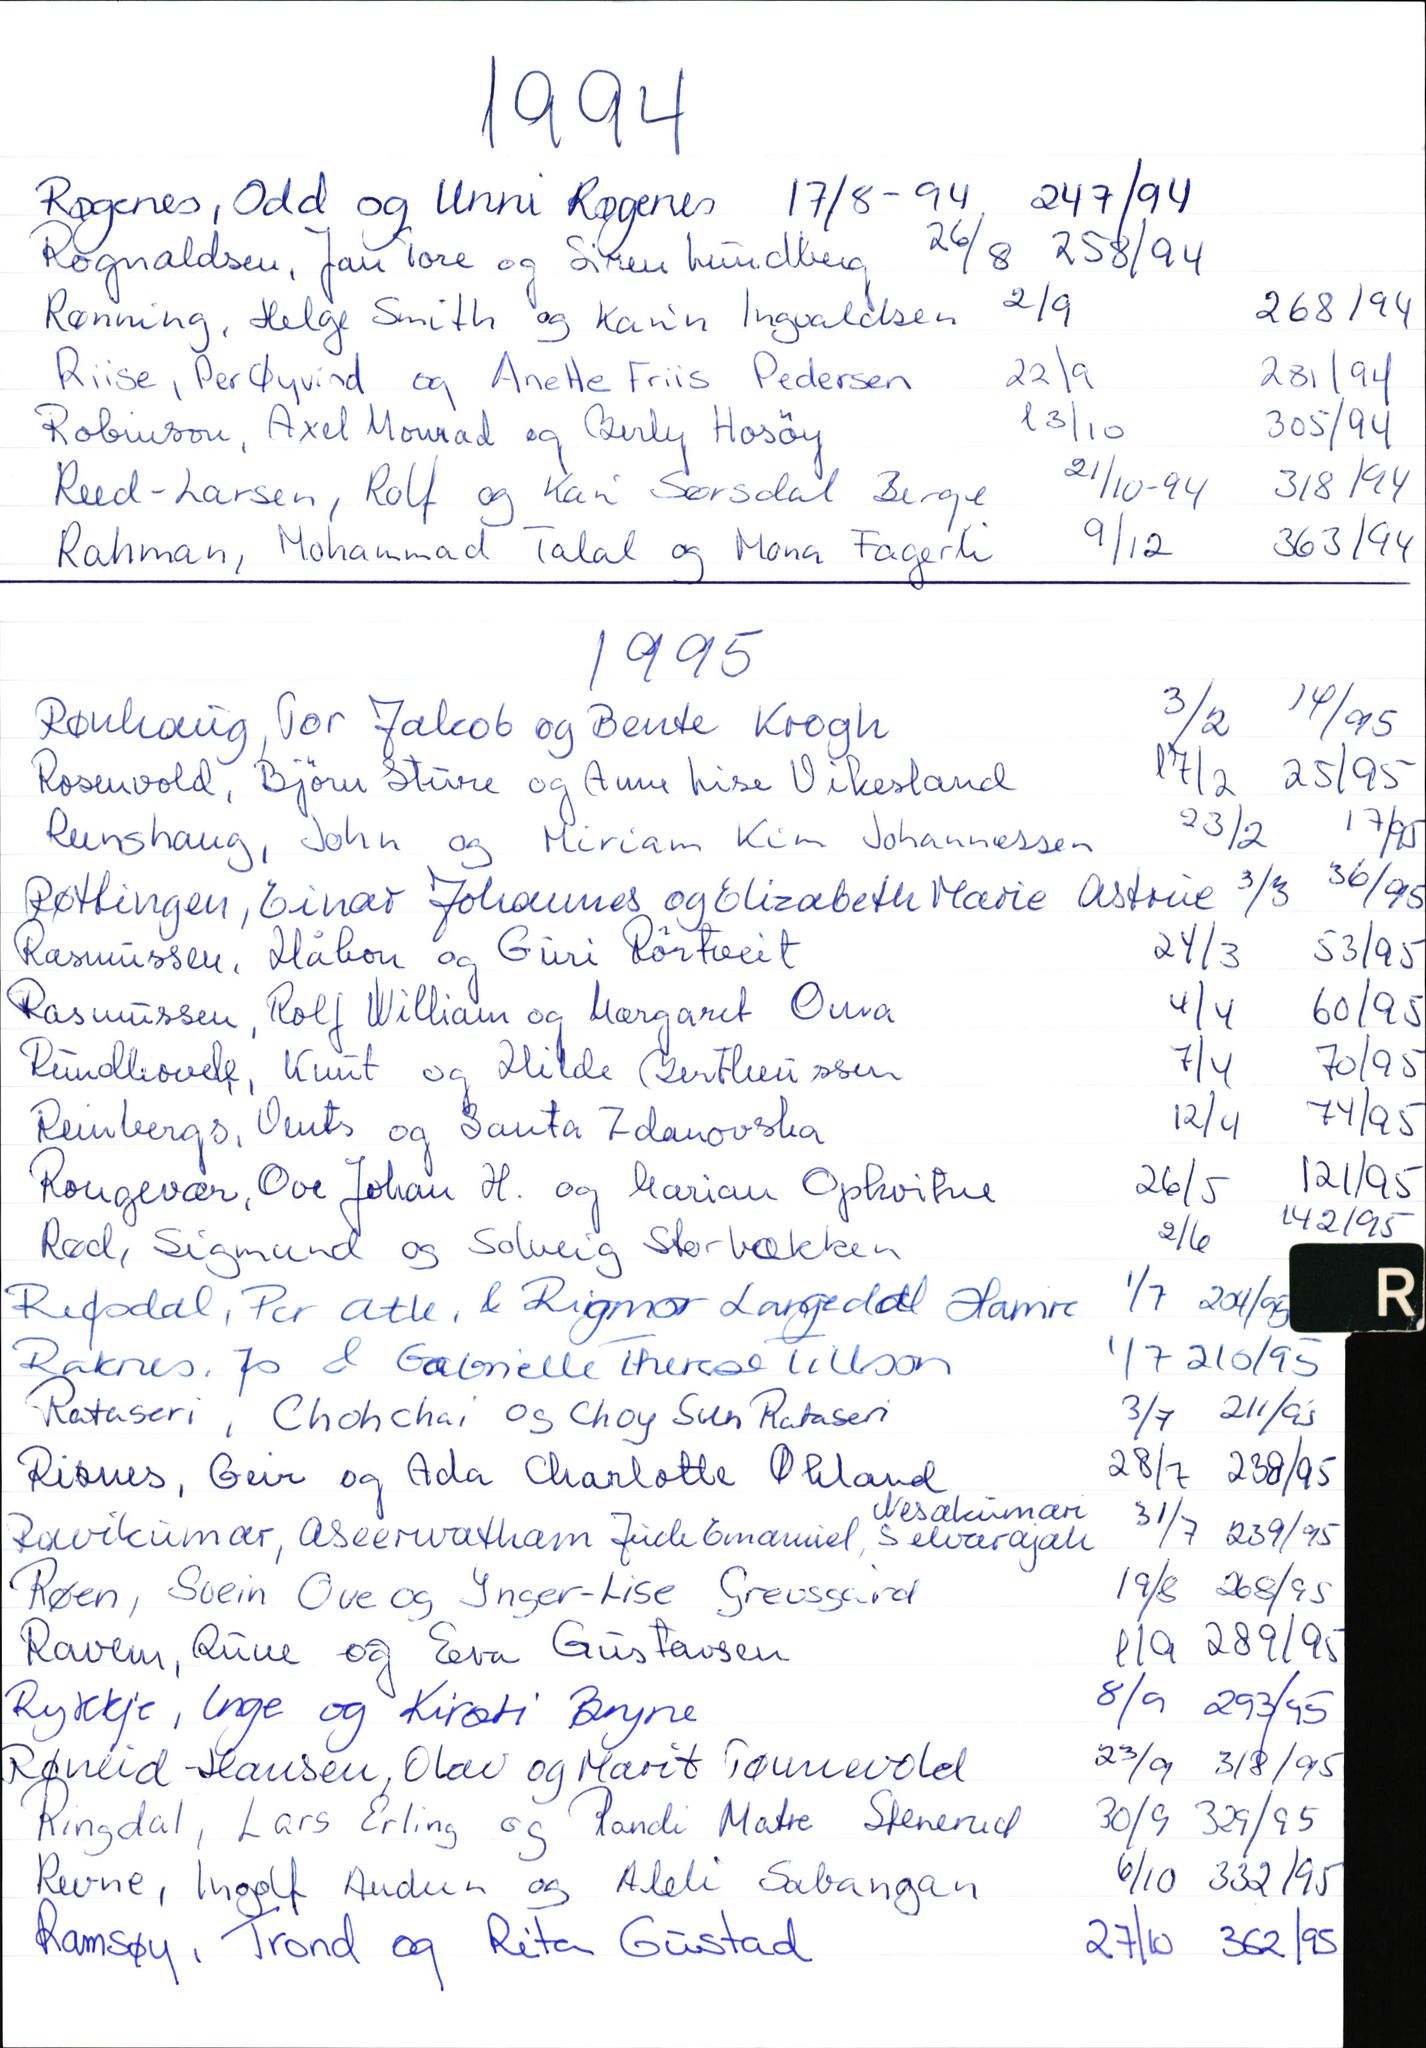 1994
Røgenes, Odd og Unni Røgenes 17/8-94 247/94
Rognaldsen, Jan Tore og Siren Lundberg 26/8 258/94
Rønning, Helge Smith og Karin Ingvaldsen 2/9 268/94
Riise, Per Øyvind og Anette Friis Pedersen 22/9 281/94
Robinson, Axel Monrad og Berly Hosöy 13/10 305/94
Reed-Larsen, Rolf og Kari Sørsdal Berge 21/10-94 318/94
Rahman, Mohammad Talal og Mona Fagerli 9/12 363/94
1995
Rønhaug, Tor Jakob og Bente Krogh 3/2 14/95
Rosenvold, Björn Sture og Anne Lise Vikesland 17/2 25/95
Runshaug, John og Miriam Kim Johannessen 23/2 17/95
Røttingen, Einar Johannes og Elizabeth Marie Astrue 3/3 36/95
Rasmussen, Håkon og Guri Rörtveit 24/3 53/95
Rasmussen, Rolf William og Margaret Onva 4/4 60/95
Rundhovde, Knut og Hilde Bertheussen 7/4 70/95
Reinbergs, Vents og Santa Zdanovska 12/4 74/95
Rongevær, Ove Johan H. og Marian Opkvitne 26/5 121/95
Rød, Sigmund og Solveig Storbækken 2/6 142/95
Refsdal, Per Atle, & Rigmor Langedal Hamre 1/7 204/95
R
Raknes, Jo & Gabrielle Therese Tillson 1/7 210/95
Rataseri, Chohchai og Choy Sun Rataseri 3/7 211/95
Risnes, Geir og Ada Charlotte Økland 28/7 238/95
Ravikumar, Aseervatham Jude Emanuel, Nesakumari Selvarajah 31/7 239/95
Røen, Svein Ove og Inger-Lise Grevsgård 19/8 268/95
Ravem, Rune og Eva Gustavsen 1/9 289/95
Rykkje, Inge og Kirsti Bryne 8/9 293/95
Røneid-Hansen, Olav og Marit Tønnevold 23/9 318/95
Ringdal, Lars Erling og Randi Matre Stenerud 30/9 329/95
Revne, Ingolf Audun og Aleli Sabangan 6/10 332/95
Ramsøy, Trond og Rita Gustad 27/10 362/95